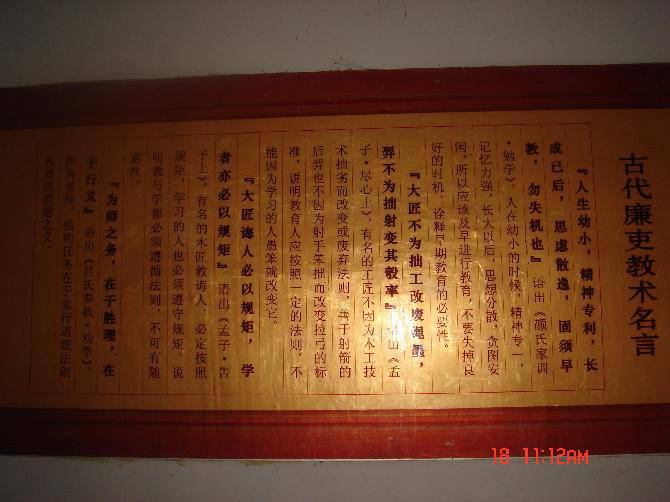 古代廉吏教术名言
『人生幼小，精神专利，长
成已后，思虑散逸，固须早
教，勿失机也』 语出《颜氏家训
·勉学》。人在幼小的时候，精神专一，
记忆力强，长大以后，思想分散，贪图安
闲，所以应该及早进行教育，不要失掉良
好的时机。诠释早期教育的必要性。
『大匠不为拙工改废绳墨，
羿不为拙射变其彀率』语出《孟
子·尽心上》。有名的工匠不因为木工技
术拙劣而改变或废弃法则，善于射箭的
后羿也不因为射手笨拙而改变拉弓的标
准。说明教育人应按照一定的法则，不
能因为学习的人愚笨就改变它。
『大匠诲人必以规矩，学
者亦必以规矩』 语出《孟子·告
子上》。有名的木匠教诲人，必定按照
规矩，学习的人也必须遵守规矩，说
明教与学都必须遵循法则，不可有随
意性。
『为师之务，在于胜理，在
于行义』 语出《吕氏春秋·劝学》。
作为老师，他的任务在于实行道理法则
和尊道崇德之义。
18 11:12AM